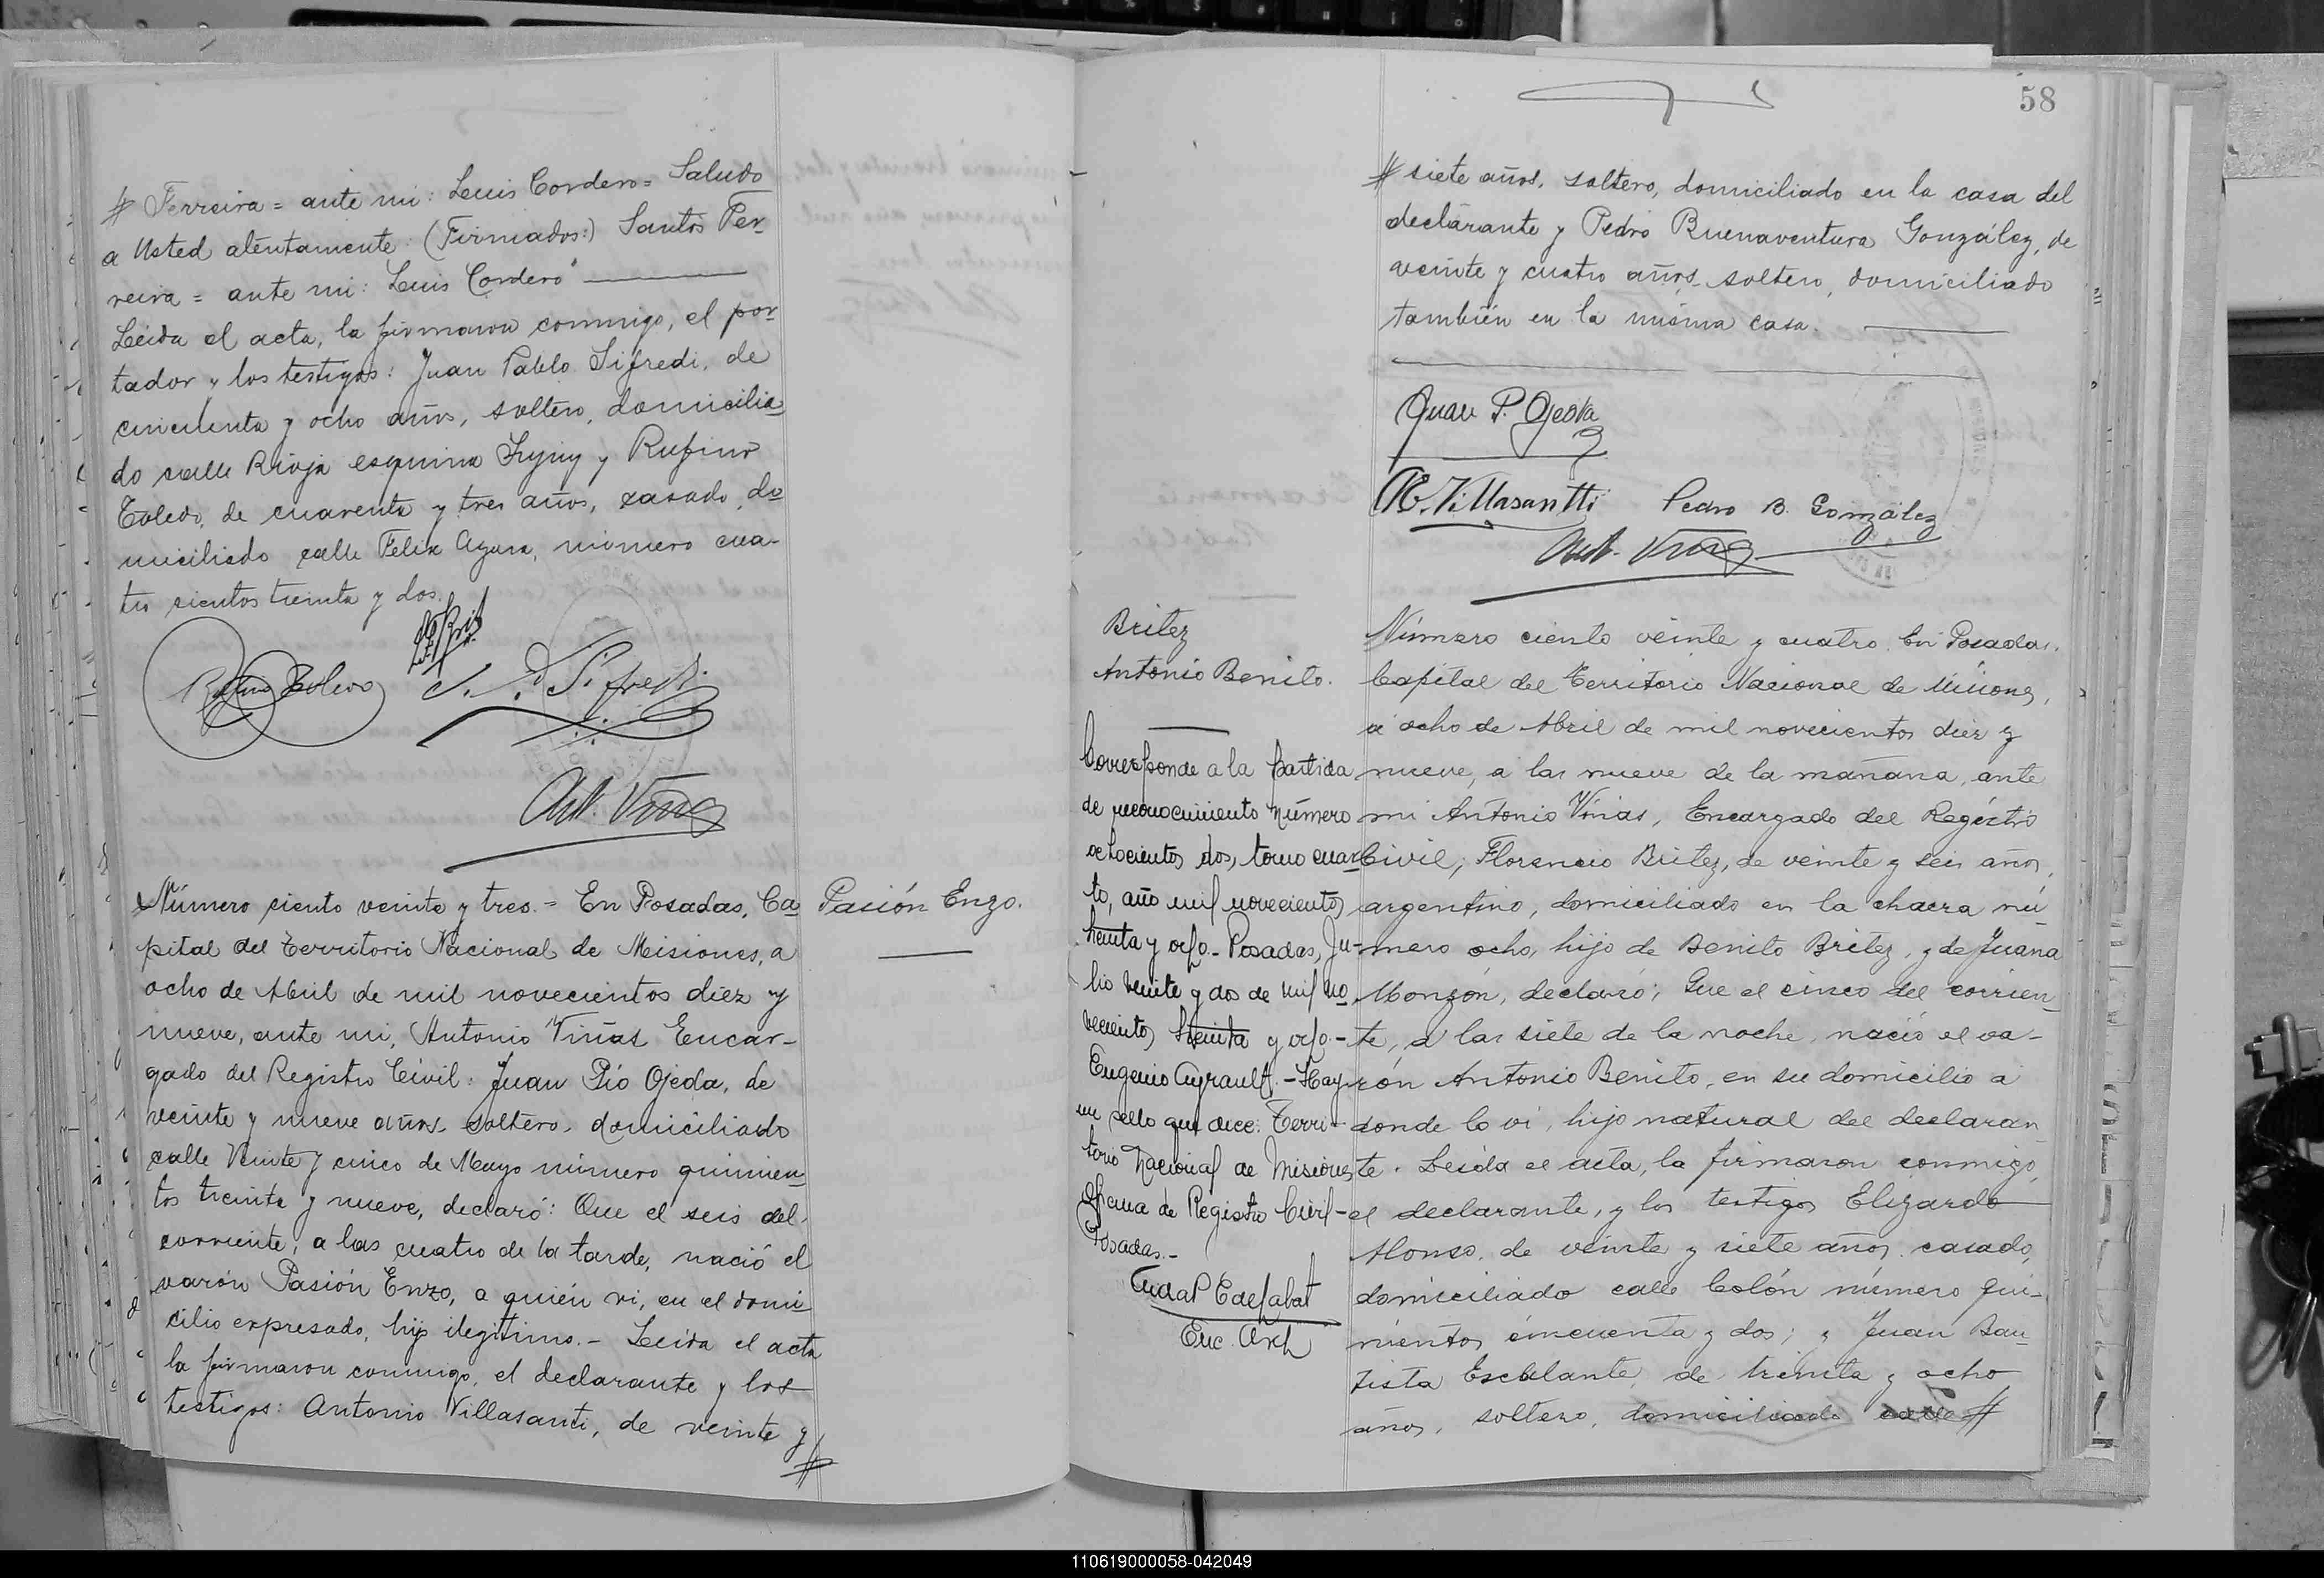 # Ferreira = ante mi: Luis Cordero = Saludo
a Usted atentamente: (Firmados:) Santos Fer-
reira = ante mi: Luis Cordero"
Leida el acta, la firmaron conmigo, el por-
tador y los testigos: Juan Pablo Sifredi, de
cincuenta y ocho años, soltero, domicilia-
do calle Rioja esquina Jujuy y Rufino
Toledo, de cuarenta y tres años, casado, do-
miciliado calle Felix Azara, número cua-
tro cientos treinta y dos.
Rufino Toledo
J. P. Sifredi
Ant. Viñas
Número ciento veinte y tres. = En Posadas, Ca-
pital del Territorio Nacional de Misiones, a
ocho de Abril de mil novecientos diez y
nueve, ante mi, Antonio Viñas Encar-
gado del Registro Civil: Juan Pío Ojeda, de
veinte y nueve años, soltero, domiciliado
calle Veinte y cinco de Mayo número quinien-
tos treinta y nueve, declaró: Que el seis del
corriente, a las cuatro de la tarde, nació el
varón Pasión Enzo, a quién vi, en el domi-
cilio expresado, hijo ilegitimo. - Leida el acta
la firmaron conmigo, el declarante y los
testigos: Antonio Villasanti, de veinte y
#
Pasión Enzo.
58
# siete años, soltero, domiciliado en la casa del
declarante y Pedro Buenaventura González, de
veinte y cuatro años, soltero, domiciliado
también en la misma casa.
Juan P. Ojeda
A. Villasantti Pedro B. González
Ant. Viñas
Britez
Antonio Benito.
Corresponde a la partida
de reconocimiento número
ochocientos dos, tomo cuar-
to, año mil novecientos
treinta y ocho. - Posadas, Ju-
lio veinte y dos de mil no-
vecientos treinta y ocho. -
Eugenio Ayrault. - Hay
un sello que dice: Terri-
torio Nacional de Misiones
Oficina de Registro Civil -
Posadas. -
Enc. Arch
Número ciento veinte y cuatro. En Posadas,
Capital del Territorio Nacional de Misiones,
a ocho de Abril de mil novecientos diez y
nueve, a las nueve de la mañana, ante
mi Antonio Viñas, Encargado del Registro
Civil; Florencio Britez, de veinte y seis años,
argentino, domiciliado en la chacra nú-
mero ocho, hijo de Benito Britez, y de Juana
Monzón, declaró; Que el cinco del corrien-
te, a las siete de la noche, nació el va-
rón Antonio Benito, en su domicilio a
donde lo vi, hijo natural del declaran-
te. Leída el acta, la firmaron conmigo,
el declarante, y los testigos Elizardo
Alonso, de veinte y siete años, casado,
domiciliado calle Colón número qui-
nientos cincuenta y dos; y Juan Bau-
tista Escalante, de treinta y ocho
años, soltero, domiciliado calle #
110619000058-042049